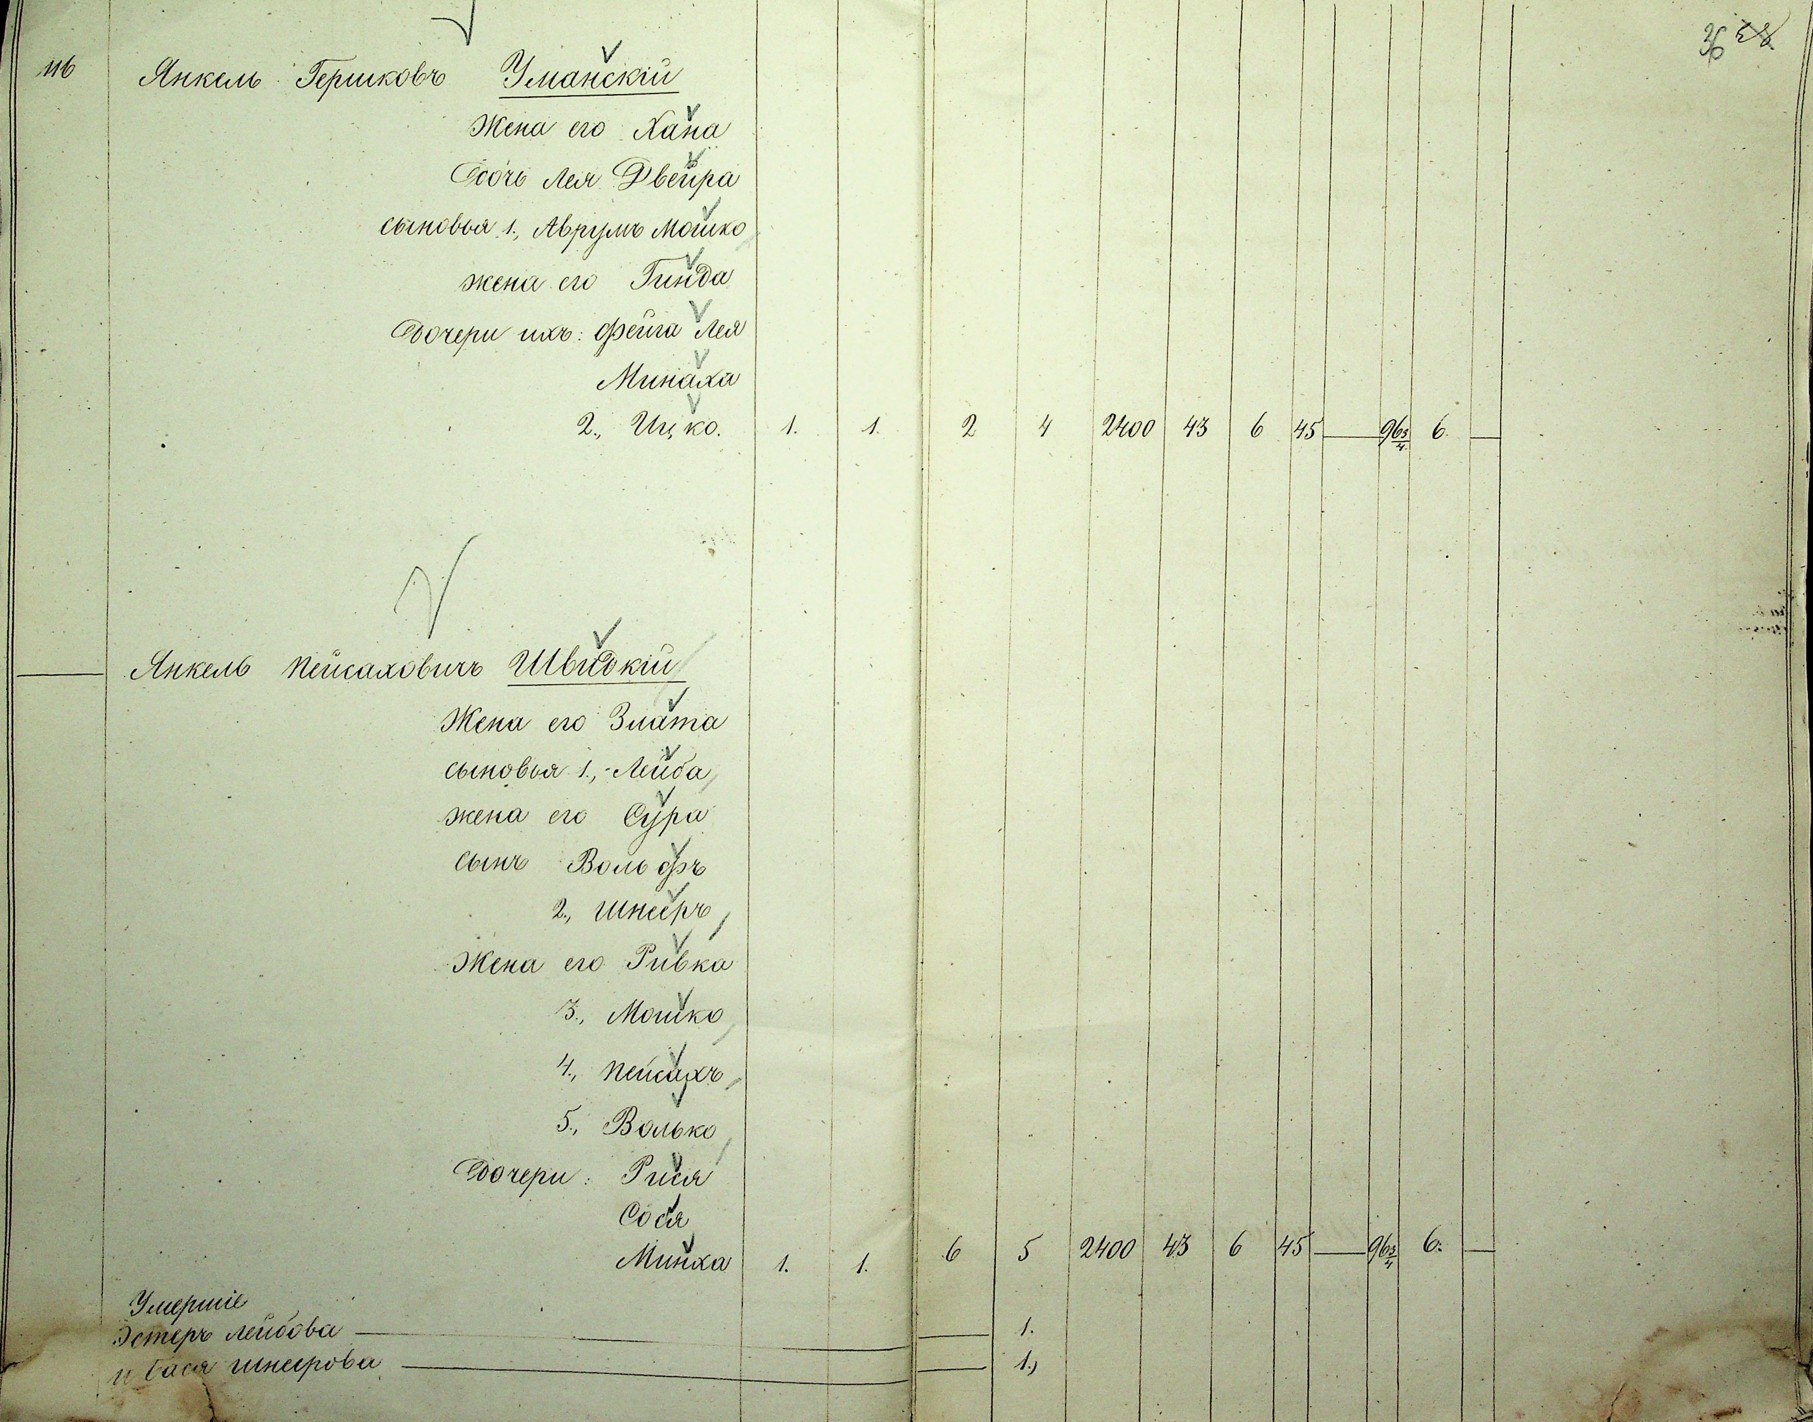 36
116 Янкель Гершковъ Уманскій
Жена его Хана
Дочь Лея Двейра
сыновья 1., Аврумъ Мошко
жена его Гинда
Дочери ихъ: Фейга Лея
Минаха
2., Ицко. 1. 1. 2 4 2400 43 6 45 — 96 3/4 6. —
— Янкель Пейсаховичъ Швидкій
Жена его Злата
сыновья 1., Лейба
жена его Сура
сынъ Вольфъ
2., Шнееръ
Жена его Ривка
3., Мошко
4., Пейсахъ
5., Волько
Дочери: Рися
Сося
Минха 1. 1. 6 5 2400 43 6 45 — 96 3/4 6. —
Умершіе
Эстеръ Лейбова — — 1.
и Бася Шнеерова — — 1.,